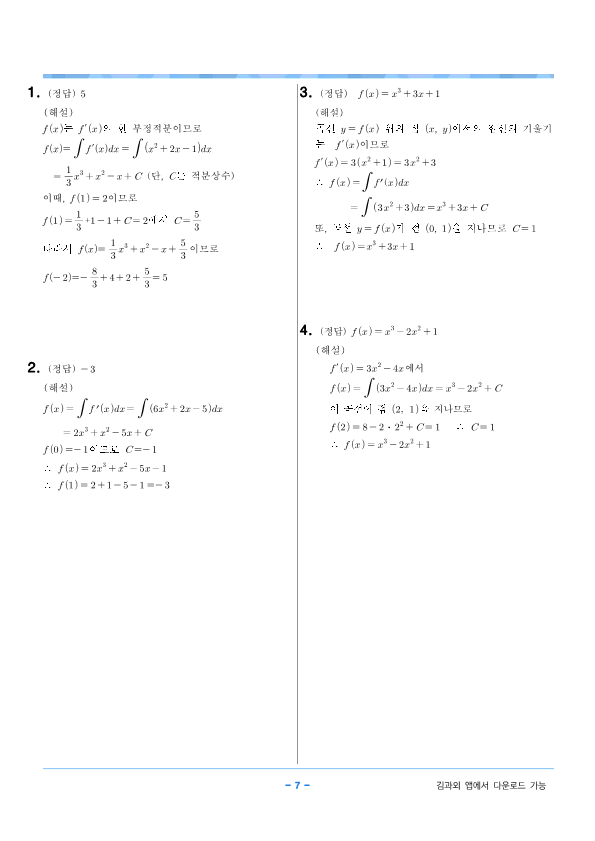 1. (정답) 5
(해설)
f(x)는 f′(x)의 한 부정적분이므로
f(x)=∫f′(x)dx=∫(x²+2x-1)dx
=1/3x³+x²-x+C (단, C는 적분상수)
이때, f(1)=2이므로
f(1)=1/3+1-1+C=2에서 C=5/3
따라서 f(x)=1/3x³+x²-x+5/3이므로
f(-2)=-8/3+4+2+5/3=5
2. (정답) -3
(해설)
f(x)=∫f′(x)dx=∫(6x²+2x-5)dx
=2x³+x²-5x+C
f(0)=-1이므로 C=-1
∴ f(x)=2x³+x²-5x-1
∴ f(1)=2+1-5-1=-3
3. (정답) f(x)=x³+3x+1
(해설)
곡선 y=f(x) 위의 점 (x, y)에서의 접선의 기울기
는 f′(x)이므로
f′(x)=3(x²+1)=3x²+3
∴ f(x)=∫f′(x)dx
=∫(3x²+3)dx=x³+3x+C
또, 곡선 y=f(x)가 점 (0, 1)을 지나므로 C=1
∴ f(x)=x³+3x+1
4. (정답) f(x)=x³-2x²+1
(해설)
f′(x)=3x²-4x에서
f(x)=∫(3x²-4x)dx=x³-2x²+C
이 곡선이 점 (2, 1)을 지나므로
f(2)=8-2·2²+C=1 ∴ C=1
∴ f(x)=x³-2x²+1
- 7 -
김과외 앱에서 다운로드 가능